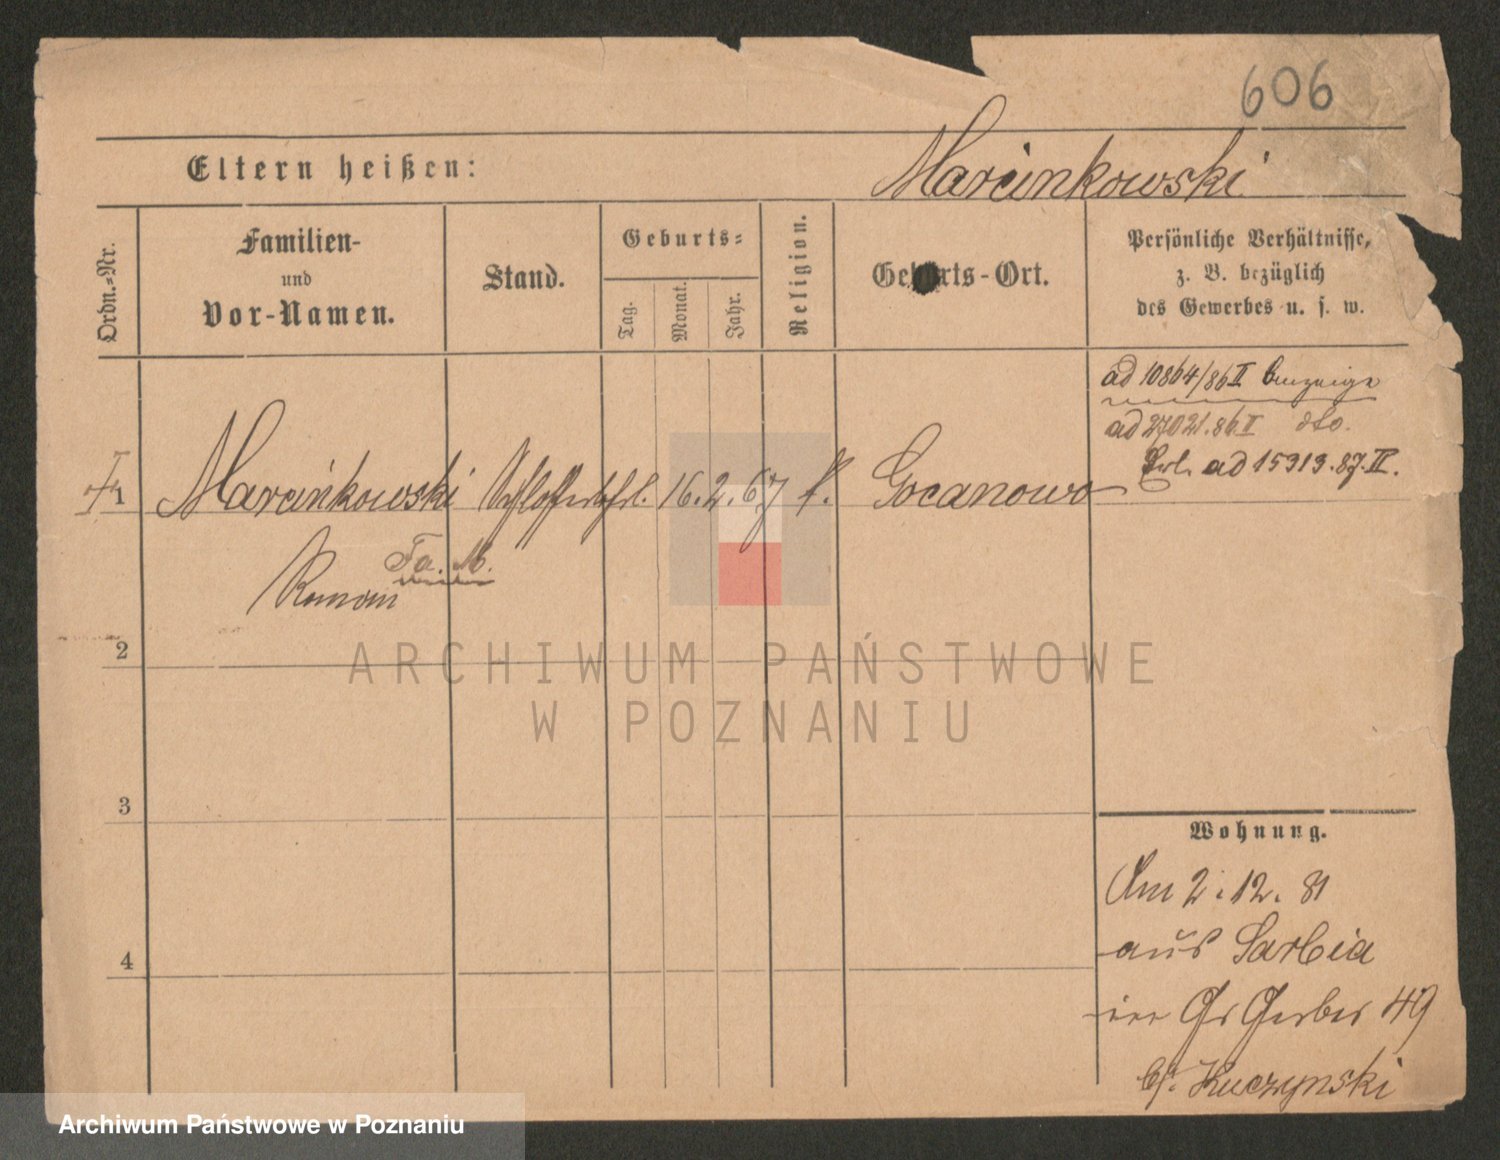 606
Eltern heißen:
Marcinkowski
Ordn.-Nr.
Familien-
und
Vor-Namen.
Stand.
Geburts-
Tag.
Monat.
Jahr.
Religion.
Geburts-Ort.
Persönliche Verhältnisse,
z. B. bezüglich
des Gewerbes u. s. w.
ad 10864/86 II Anzeige
ad 27021.86 II dto.
ad 15313.87.II.
1 Marcinkowski 16. 2. 67 k. Gocanowo
Roman
2
3
4
Wohnung.
Am 2. 12. 81
aus Sarbia
in Gr Gerber 49
b/. Kuczynski
ARCHIWUM PAŃSTWOWE
W POZNANIU
Archiwum Państwowe w Poznaniu